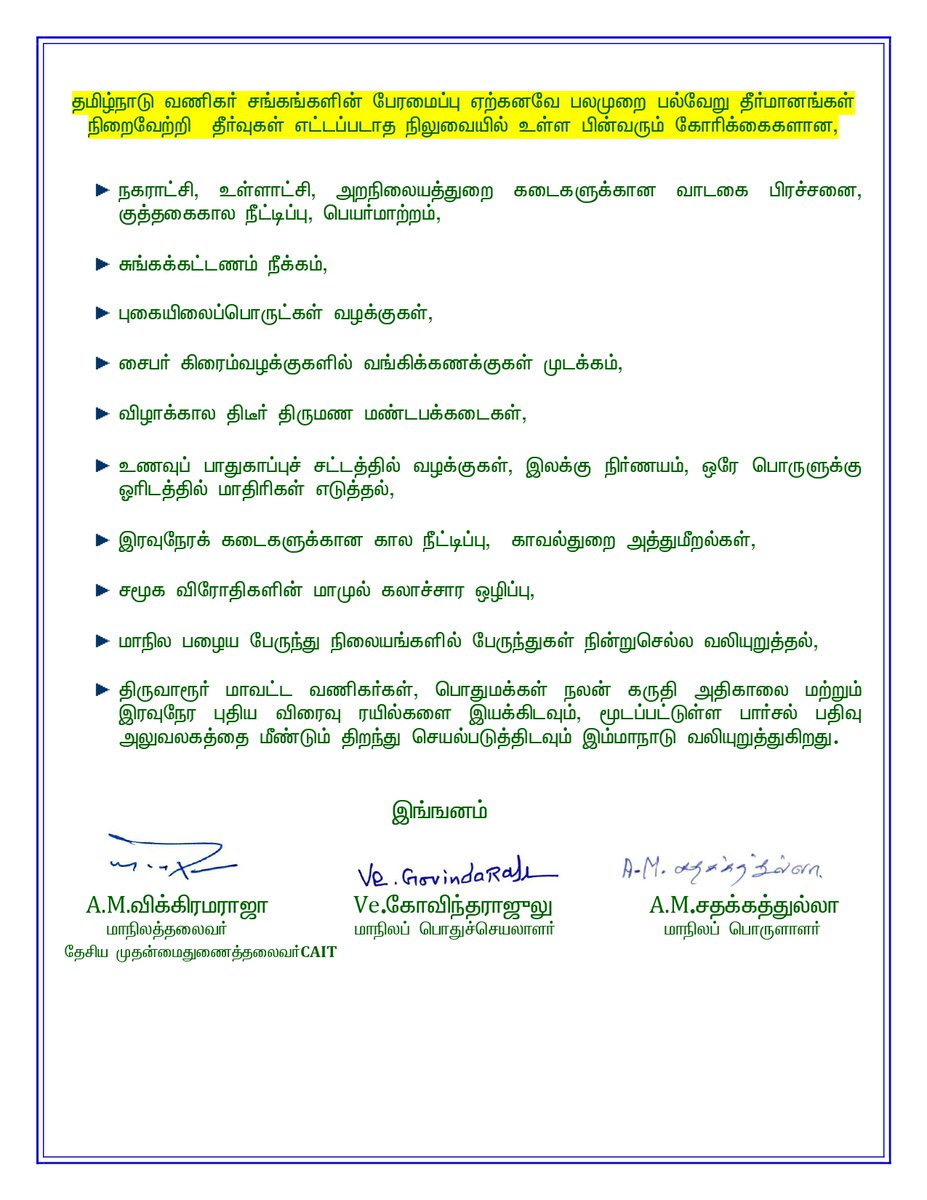 தமிழ்நாடு வணிகர் சங்கங்களின் பேரமைப்பு ஏற்கனவே பலமுறை பல்வேறு தீர்மானங்கள்
நிறைவேற்றி தீர்வுகள் எட்டப்படாத நிலுவையில் உள்ள பின்வரும் கோரிக்கைகளான,
► நகராட்சி, உள்ளாட்சி, அறநிலையத்துறை கடைகளுக்கான வாடகை பிரச்சனை,
குத்தகைகால நீட்டிப்பு, பெயர்மாற்றம்,
► சுங்கக்கட்டணம் நீக்கம்,
► புகையிலைப்பொருட்கள் வழக்குகள்,
► சைபர் கிரைம்வழக்குகளில் வங்கிக்கணக்குகள் முடக்கம்,
► விழாக்கால திடீர் திருமண மண்டபக்கடைகள்,
► உணவுப் பாதுகாப்புச் சட்டத்தில் வழக்குகள், இலக்கு நிர்ணயம், ஒரே பொருளுக்கு
ஓரிடத்தில் மாதிரிகள் எடுத்தல்,
► இரவுநேரக் கடைகளுக்கான கால நீட்டிப்பு, காவல்துறை அத்துமீறல்கள்,
► சமூக விரோதிகளின் மாமுல் கலாச்சார ஒழிப்பு,
► மாநில பழைய பேருந்து நிலையங்களில் பேருந்துகள் நின்றுசெல்ல வலியுறுத்தல்,
► திருவாரூர் மாவட்ட வணிகர்கள், பொதுமக்கள் நலன் கருதி அதிகாலை மற்றும்
இரவுநேர புதிய விரைவு ரயில்களை இயக்கிடவும், மூடப்பட்டுள்ள பார்சல் பதிவு
அலுவலகத்தை மீண்டும் திறந்து செயல்படுத்திடவும் இம்மாநாடு வலியுறுத்துகிறது.
இங்ஙனம்
Ve. GovindaRajlu A.M. சதக்கத்துல்லா
A.M.விக்கிரமராஜா Ve.கோவிந்தராஜுலு A.M.சதக்கத்துல்லா
மாநிலத்தலைவர் மாநிலப் பொதுச்செயலாளர் மாநிலப் பொருளாளர்
தேசிய முதன்மைதுணைத்தலைவர்CAIT